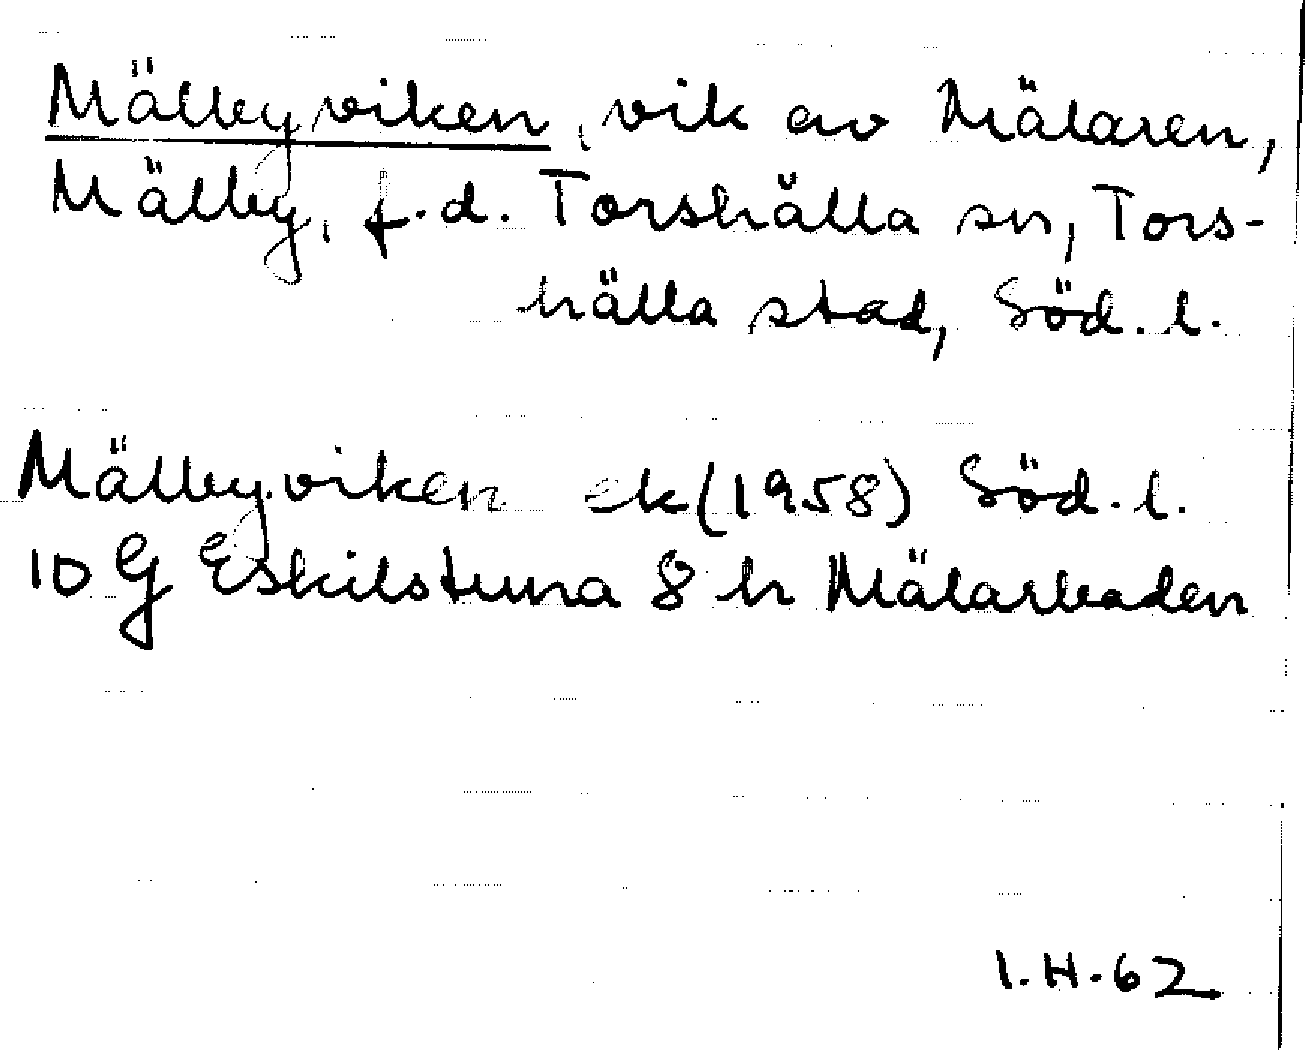 Mälbyviken, vik av Mälaren,
Mälby, f.d. Torshälla sn, Tors-
hälla stad, Söd. l.
Mälbyviken ek (1958) Söd. l.
10 G Eskilstuna 8 h Mälarbaden
I.H. 62